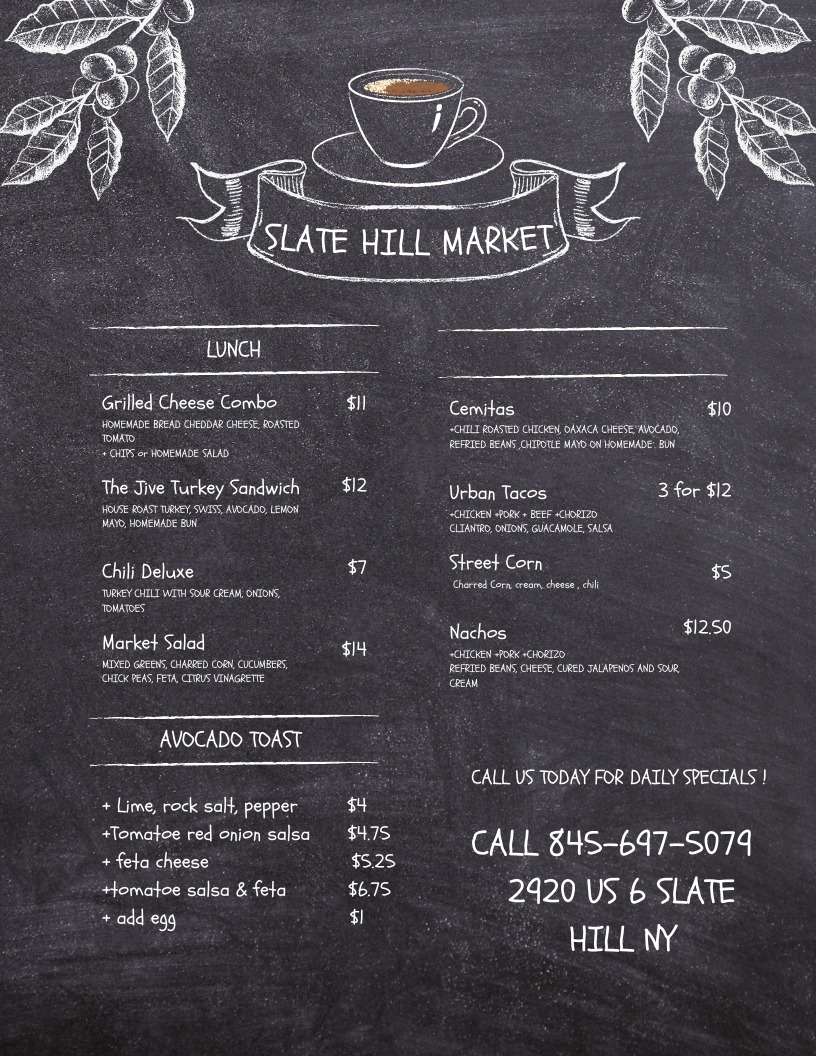 SLATE HILL MARKET
LUNCH
Grilled Cheese Combo $11
HOMEMADE BREAD CHEDDAR CHEESE, ROASTED
TOMATO
+ CHIPS or HOMEMADE SALAD
The Jive Turkey Sandwich $12
HOUSE ROAST TURKEY, SWISS, AVOCADO, LEMON
MAYO, HOMEMADE BUN
Chili Deluxe $7
TURKEY CHILI WITH SOUR CREAM, ONIONS,
TOMATOES
Market Salad $14
MIXED GREENS, CHARRED CORN, CUCUMBERS,
CHICK PEAS, FETA, CITRUS VINAGRETTE
AVOCADO TOAST
+ Lime, rock salt, pepper $4
+Tomatoe red onion salsa $4.75
+ feta cheese $5.25
+tomatoe salsa & feta $6.75
+ add egg $1
Cemitas $10
+CHILI ROASTED CHICKEN, OAXACA CHEESE, AVOCADO,
REFRIED BEANS ,CHIPOTLE MAYO ON HOMEMADE. BUN
Urban Tacos 3 for $12
+CHICKEN +PORK + BEEF +CHORIZO
CLIANTRO, ONIONS, GUACAMOLE, SALSA
Street Corn $5
Charred Corn, cream, cheese , chili
Nachos $12.50
+CHICKEN +PORK +CHORIZO
REFRIED BEANS, CHEESE, CURED JALAPENOS AND SOUR,
CREAM
CALL US TODAY FOR DAILY SPECIALS !
CALL 845-697-5079
2920 US 6 SLATE
HILL NY